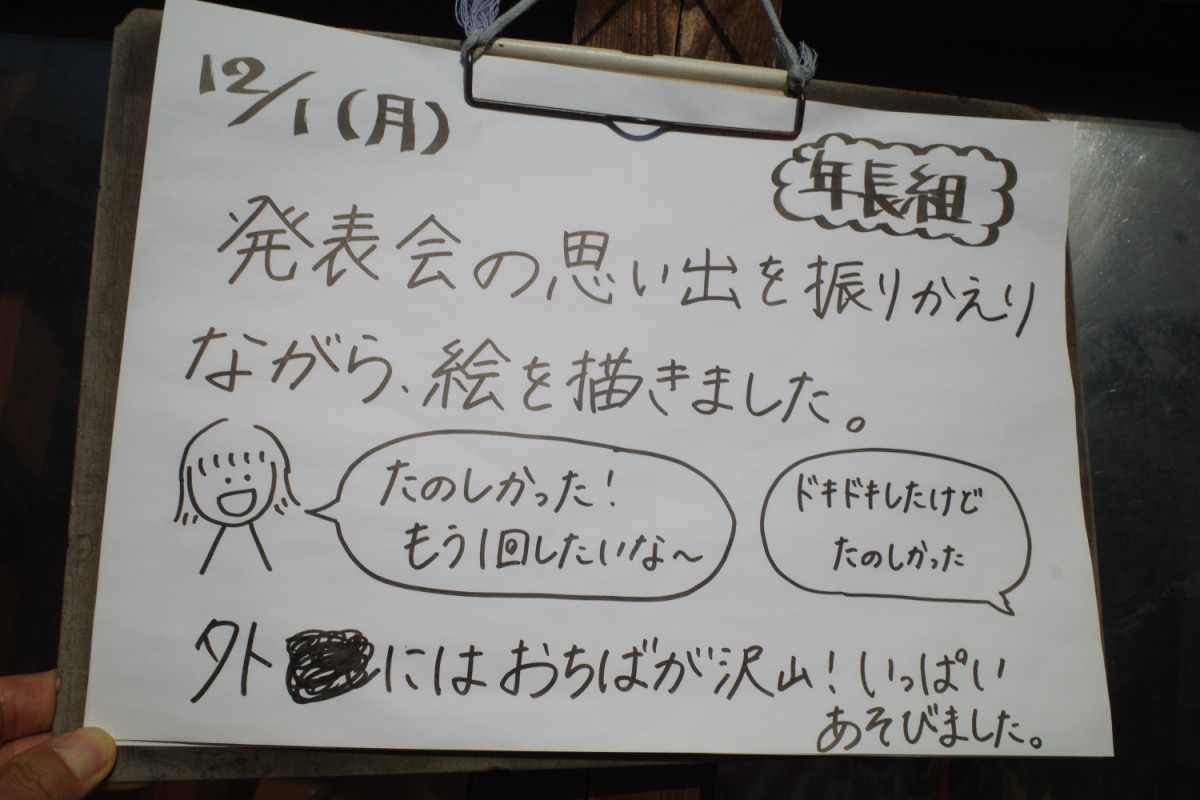 12/1(月)
年長組
発表会の思い出を振りかえり
ながら、絵を描きました。
たのしかった!
もう1回したいな〜
ドキドキしたけど
たのしかった
外 にはおちばが沢山!いっぱい
あそびました。